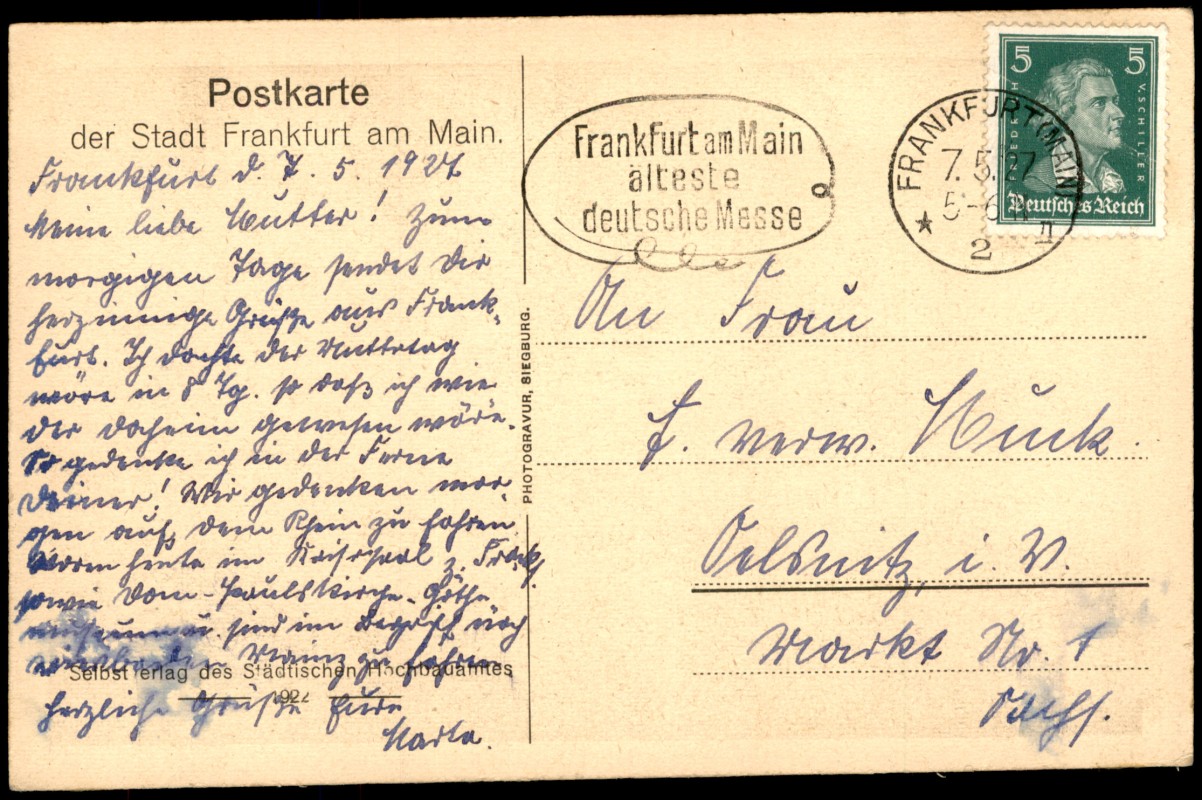 Postkarte
der Stadt Frankfurt am Main.
Frankfurt d. 7. 5. 1927.
Meine liebe Mutter! Zum
morgigen Tage sendet Dir
herzinnige Grüße aus Frank-
furt. Ich dachte der Muttertag
wäre in 8 Tg. so daß ich wie-
der daheim gewesen wäre.
So gedenke ich in der Ferne
Deiner! Wir gedenken mor-
gen auf dem Rhein zu fahren
Waren heute im Kaisersaal z. Frankf.
sowie Dom - Paulskirche - Göthe
museum u. sind im Begriff nach
Mainz zu fahren
Herzliche Grüße Eure
Marta.
Selbstverlag des Städtischen Hochbauamtes
192
PHOTOGRAVUR, SIEGBURG.
Frankfurt am Main
älteste
deutsche Messe
FRANKFURT (MAIN)
7.5.27
5-6 N
★ 2 II
5 5
FRIEDRICH V. SCHILLER
Deutsches Reich
An Frau
verw. Muck.
Oelsnitz, i. V.
Markt Nr. 1
Sachs.